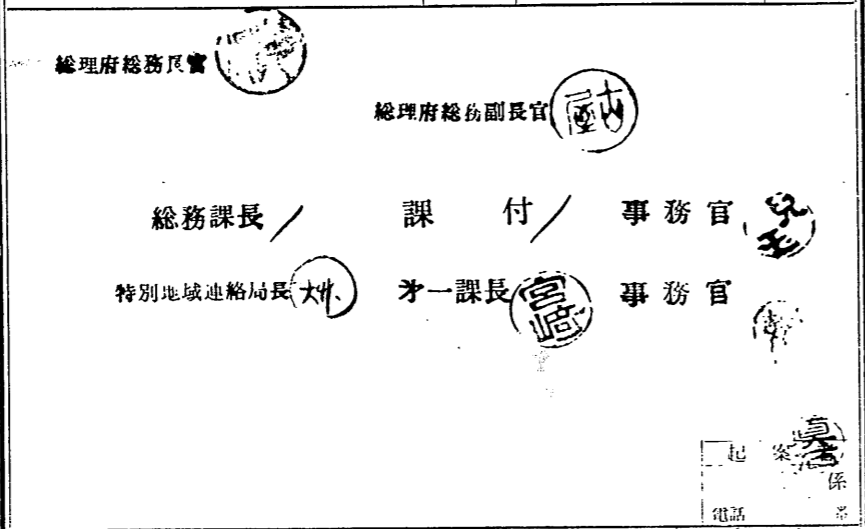 総理府総務長官
総理府総務副長官 古屋
総務課長 課付 事務官 児玉
特別地域連絡局長 大竹 才一課長 宮崎 事務官
起案
係
電話 番